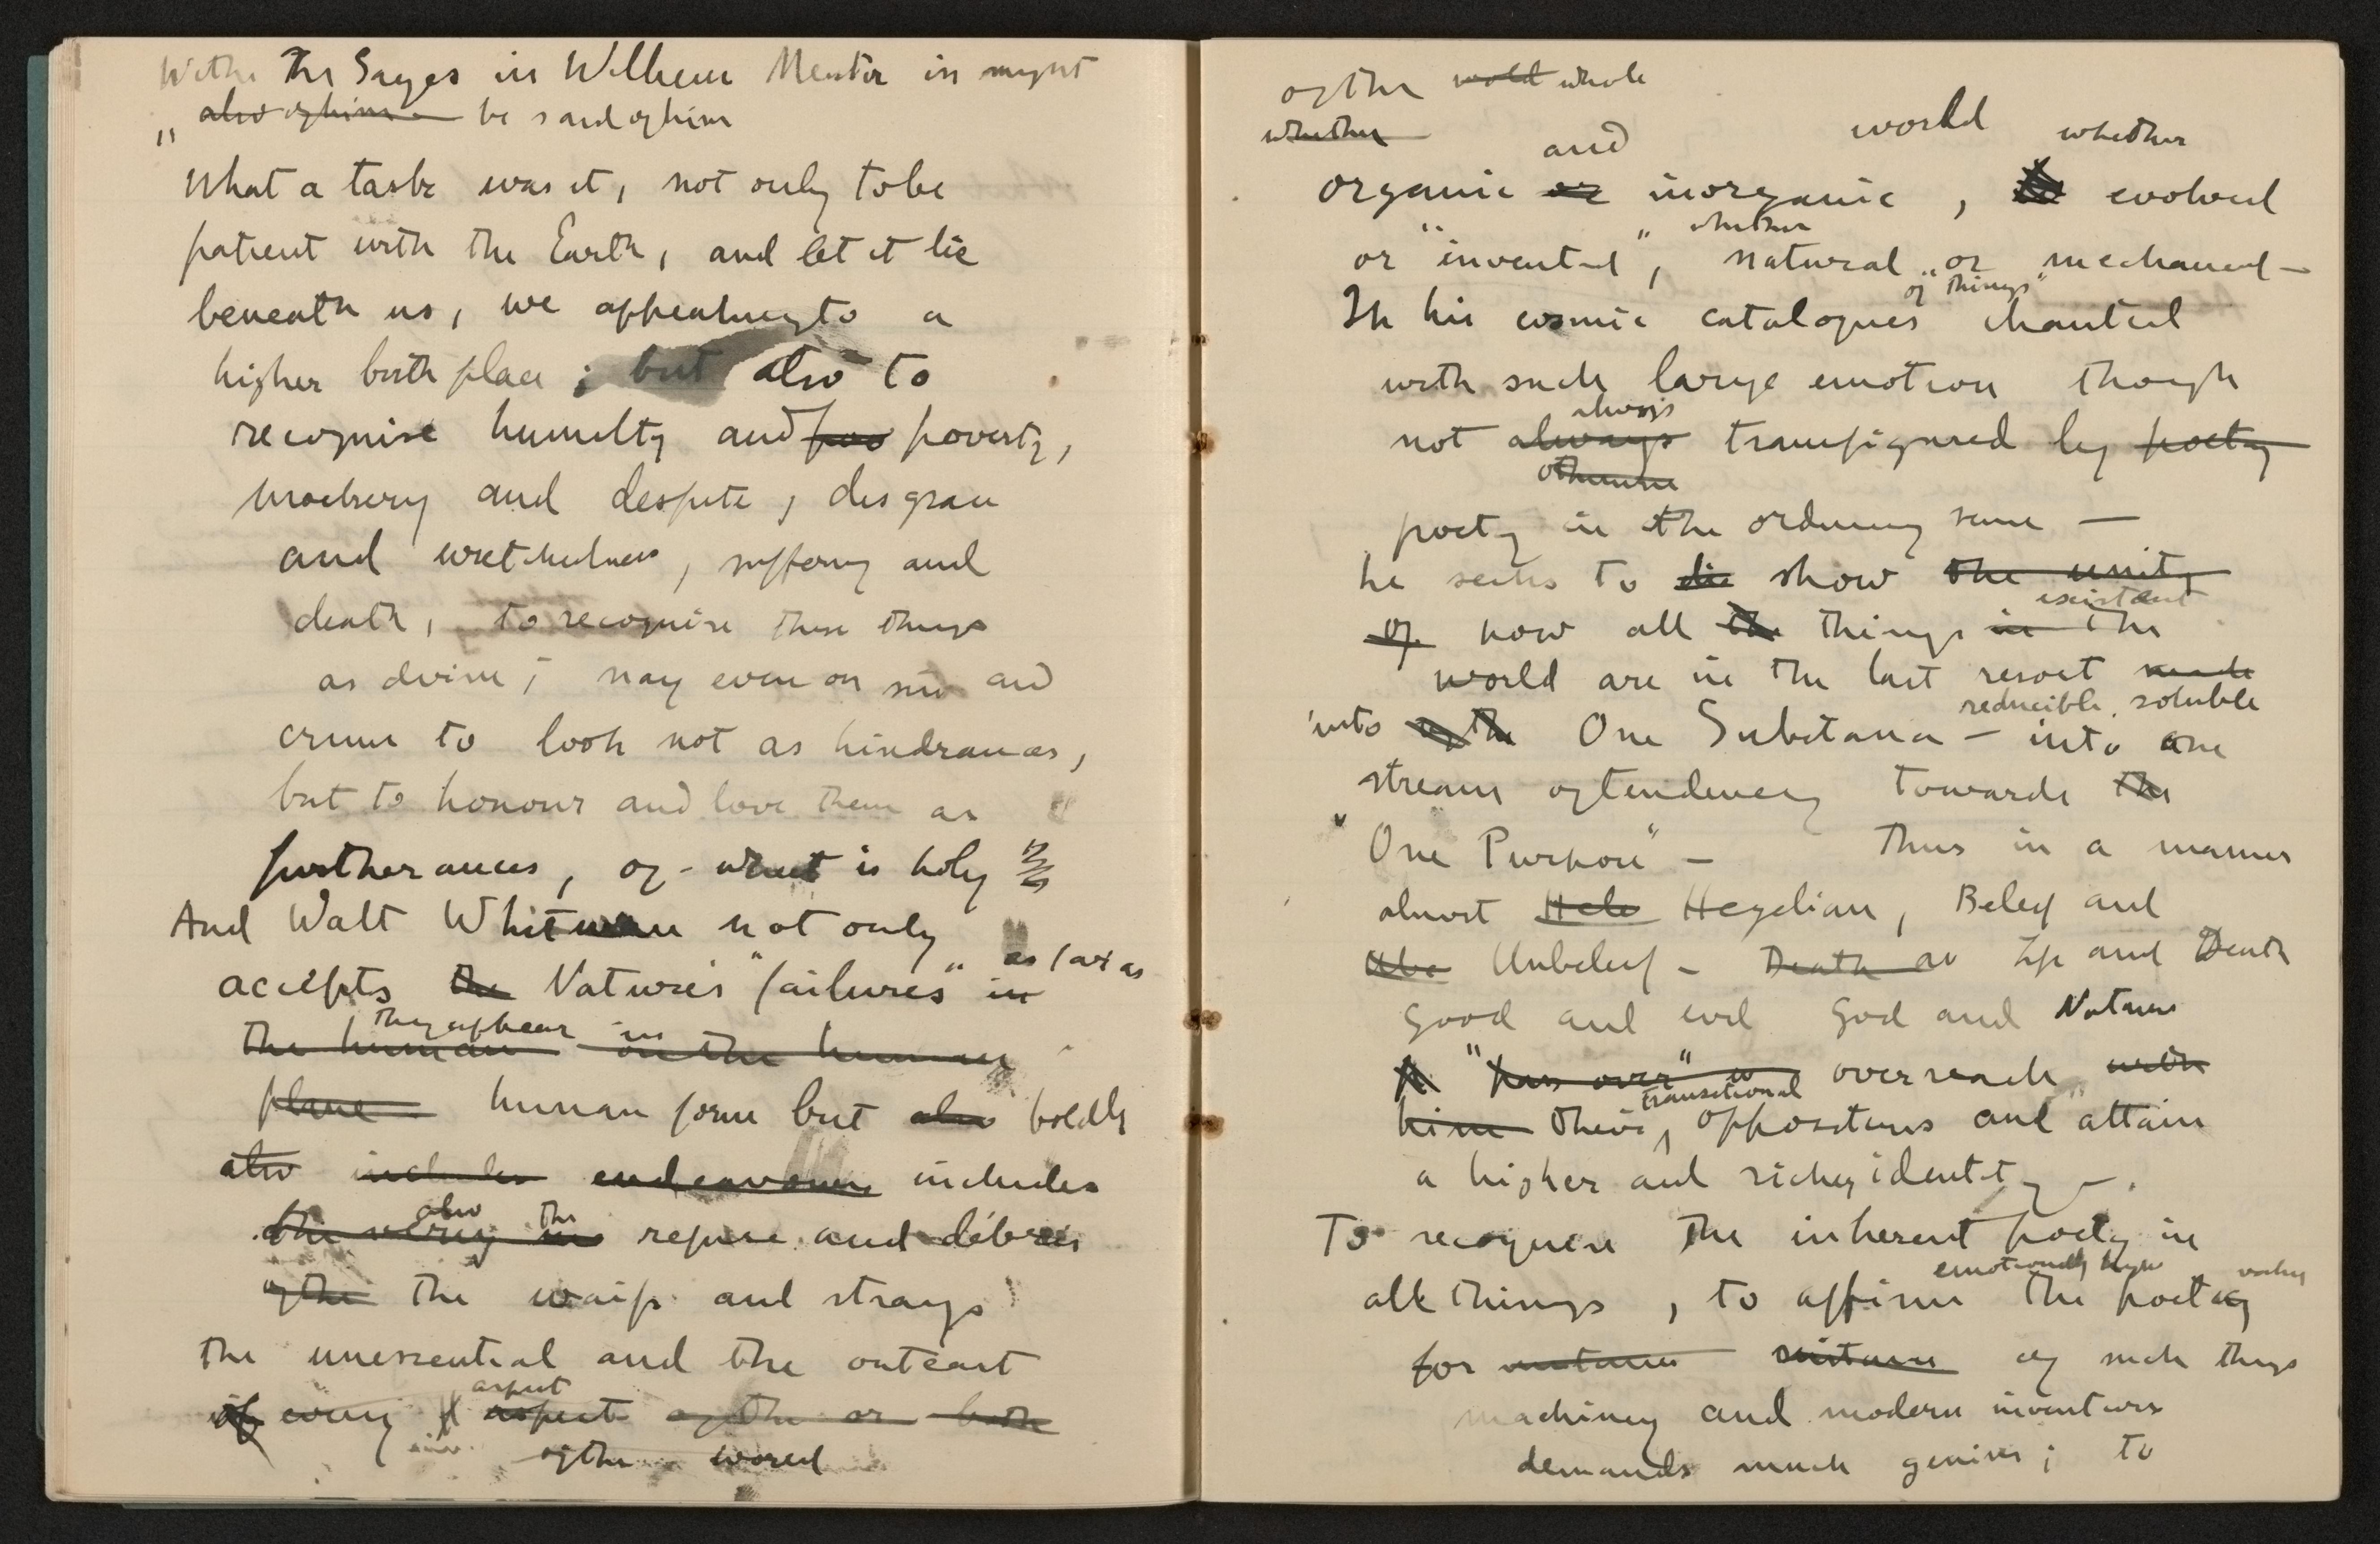 With the Sages in Wilhelm Meister it might
also of him be said of him
"What a task was it, not only to be
patient with the Earth, and let it lie
beneath us, we appealing to a
higher birthplace; but also to
recognise humility and poo poverty,
mockery and despite, disgrace
and wretchedness, suffering and
death, to recognise these things
as divine; nay even on sin and
crime to look not as hindrances,
but to honour and love them as
furtherances, of what is holy"
And Walt Whitman not only
as far as
accepts the Nature's "failures" in
they appear in
the human in the human
plane human form but also boldly
also includes endeavours includes
also the
the very in refuse and débris
of the the waifs and strays
the unessential and the outcast
aspect
of every aspect of the or both
of the world
of the world whole
whether and world whether
organic or inorganic, evolved
whether
or "invented", natural or mechanical –
of "things"
In his cosmic catalogues chanted
with such large emotion though
always
not always transfigured by poetry
otherwise
poetry in the ordinary sense —
he seeks to die show the unity
existent
of how all the things in the
world are in the last resort made
reducible, soluble
into of the One Substance – into one
stream of tendency towards the
"One Purpose" – Thus in a manner
almost Hele Hegelian, Belief and
Unbelief – Death as Life and Death
good and evil God and Nature
"pass over" overreach with
transitional
him their, oppositions and attain
a higher and richer identity –.
To recognise the inherent poetry in
emotionally
all things, to affirm the poetry
for of such things
machinery and modern inventions
demands much genius; to